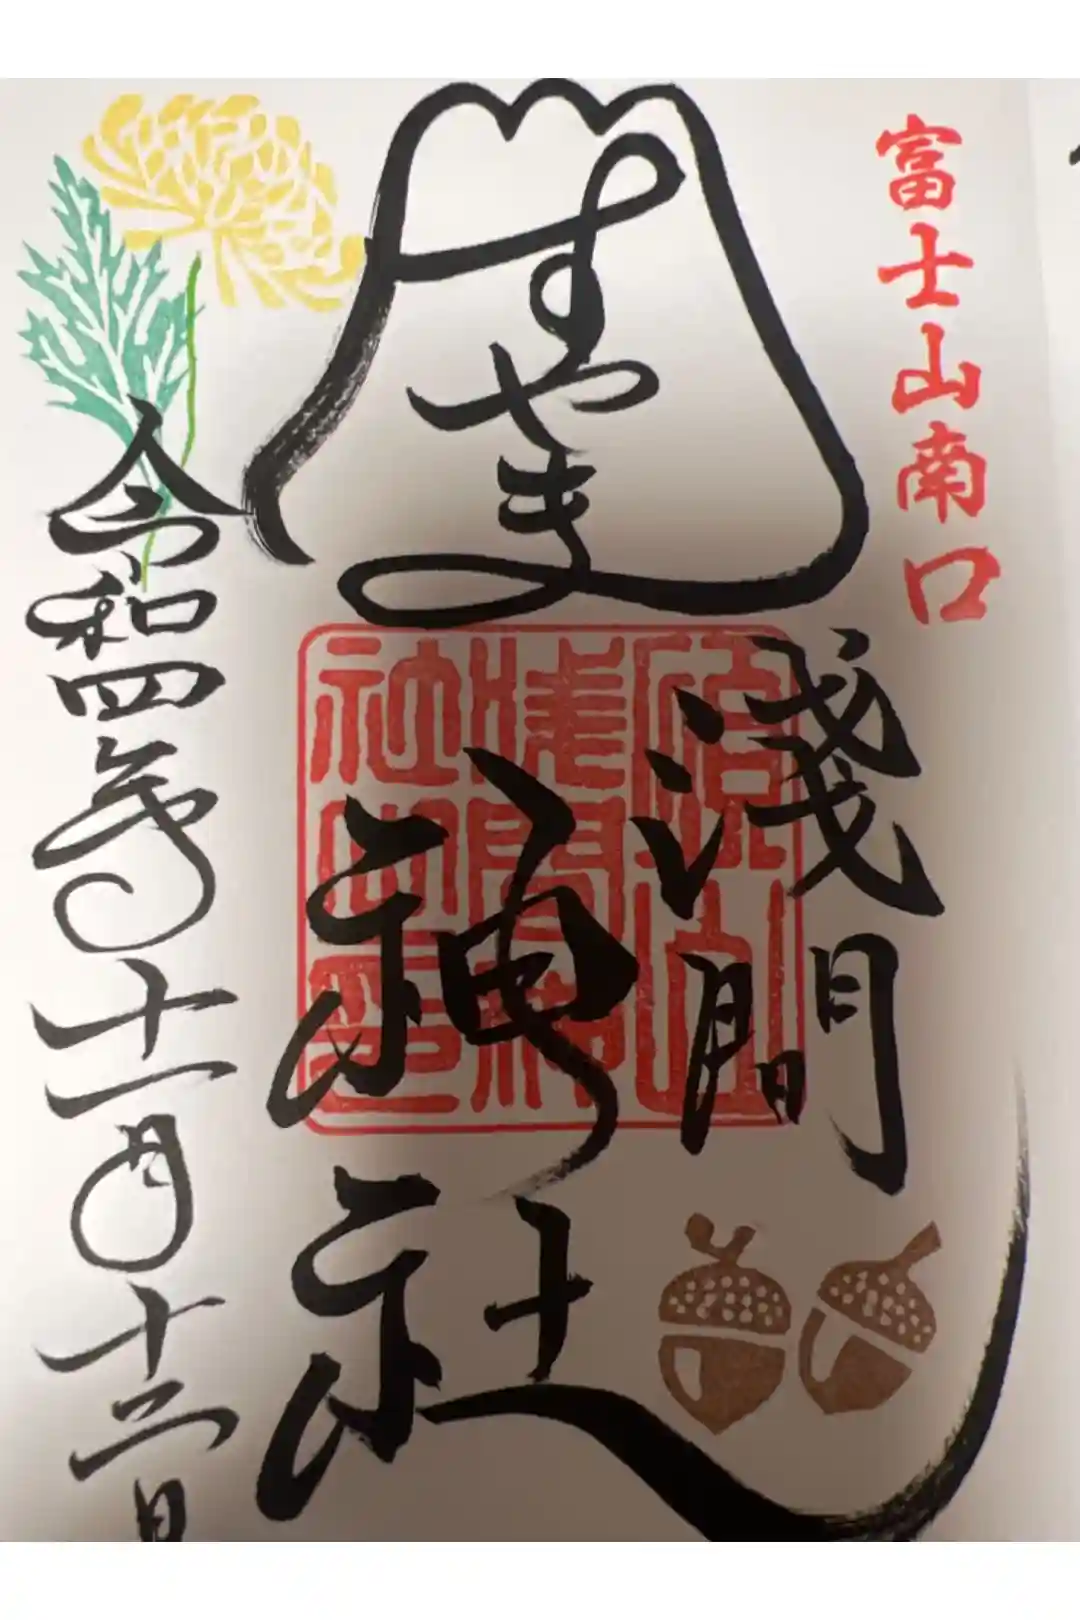 富士山南口
すやま
浅間
神社
令和四年十一月十二日